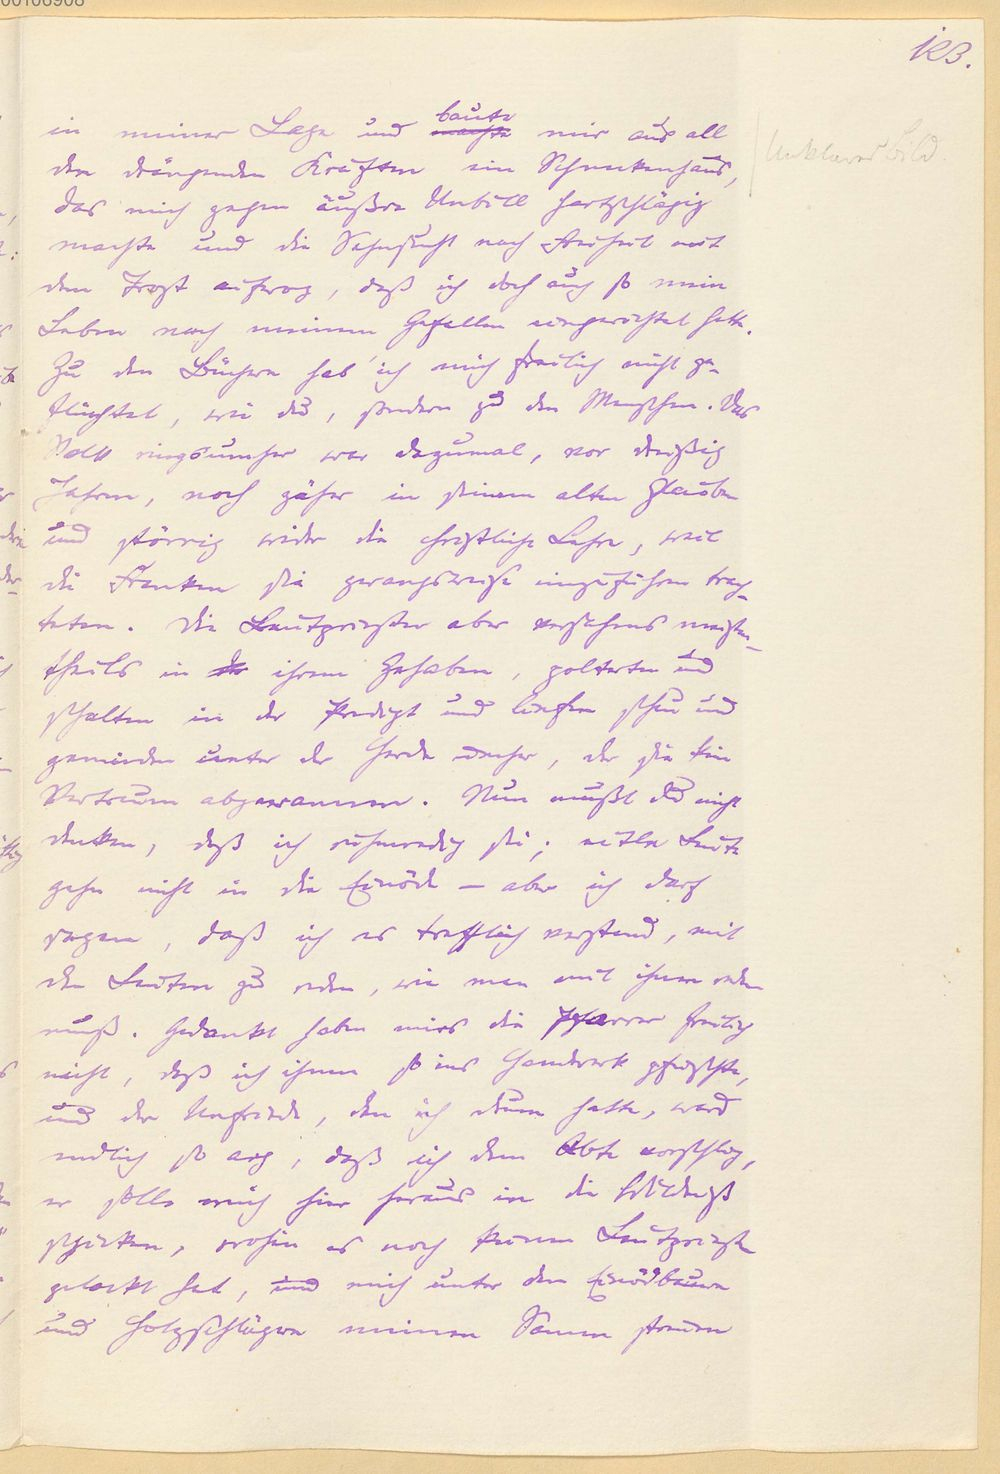 00106908
123.
baute
in meiner Lage und machte mir aus all
Unklares Bild
den drängenden Kräften ein Schneckenhaus,
das mich gegen äußre Unbill hartschlägig
machte und die Sehnsucht nach Freiheit mit
dem Trost aufwog, daß ich doch auch so mein
Leben nach meinem Gefallen eingerichtet hatte.
Zu den Büchern hab' ich mich freilich nicht ge-
flüchtet, wie du, sondern zu den Menschen. Das
Volk ringsumher war dazumal, vor dreißig
Jahren, noch zäher in seinem alten Glauben
und störrig wider die christliche Lehre, weil
die Franken sie zwangsweise einzuführen trach-
teten. Die Leutpriester aber versahens meisten-
theils in der ihrem Gehaben, polterten und
schalten in der Predigt und liefen scheu und
gemieden unter der Herde umher, der sie kein
Vertrauen abgewannen. Nun mußt du nicht
denken, daß ich ruhmredig sei; eitle Leute
gehn nicht in die Einöde – aber ich darf
sagen, daß ich es trefflich verstand, mit
den Leuten zu reden, wie man mit ihnen reden
muß. Gedankt haben mirs die Pfarrer freilich
nicht, daß ich ihnen so ins Handwerk pfuschte,
und der Unfriede, den ich drum hatte, ward
endlich so arg, daß ich dem Abte vorschlug,
er solle mich hier heraus in die Wildniß
schicken, wohin es noch keinen Leutpriester
gelockt hat, und mich unter den Einödbauern
und Holzschlägern meinen Samen streuen